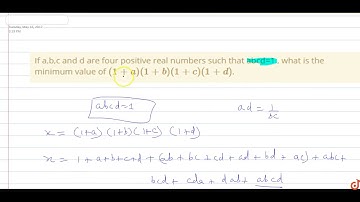 If a,b,c and d are four positive real numbers such that abcd=1, what is the
minimum value of (1 + a)(1 + b)(1 + c)(1 + d).
abcd=1
ad = 1/bc
x = (1+a) (1+b) (1+c) (1+d)
x = 1 + a+b+c+d + (ab + bc + cd + ad + bd + ac) + abc+
bcd + cda + dab + abcd